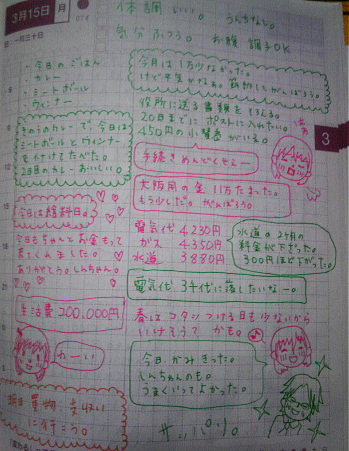 3月15日 月
体調 いい。 うんちなし。
気分 ふつう。 お腹 調子OK
・今日のごはん
カレー
・ミートボール
ウィンナー
きのうのカレーで、今日は
ミートボールとウィンナー
を付けてたべた。
2日目のカレーおいしい。
今日は給料日。
今日もちゃんとお金もって
きてくれました。
ありがとう。しんちゃん。
生活費 200,000円
わーい
明日 買物、支払い
に行こう。
今月は1万少なかった。
けど平気かなぁ。節約してがんばろう。
役所に送る書類を そろえる。
20日までに ポストに入れたい。
450円の小替為がいる。
手続きめんどくせー
3
大阪用の金 11万たまった。
もう少しだ。がんばろう。
電気代 4230円
ガス 4350円
水道 3880円
水道の2ヶ月の
料金が下だった。
300円ほど下がった。
電気代 3千代に落したいなー。
春はコタツつける日も少ないから
いけそう? かも。
今日、かみきった。
しんちゃんのも。
うまくいってよかった。
サッパリ。